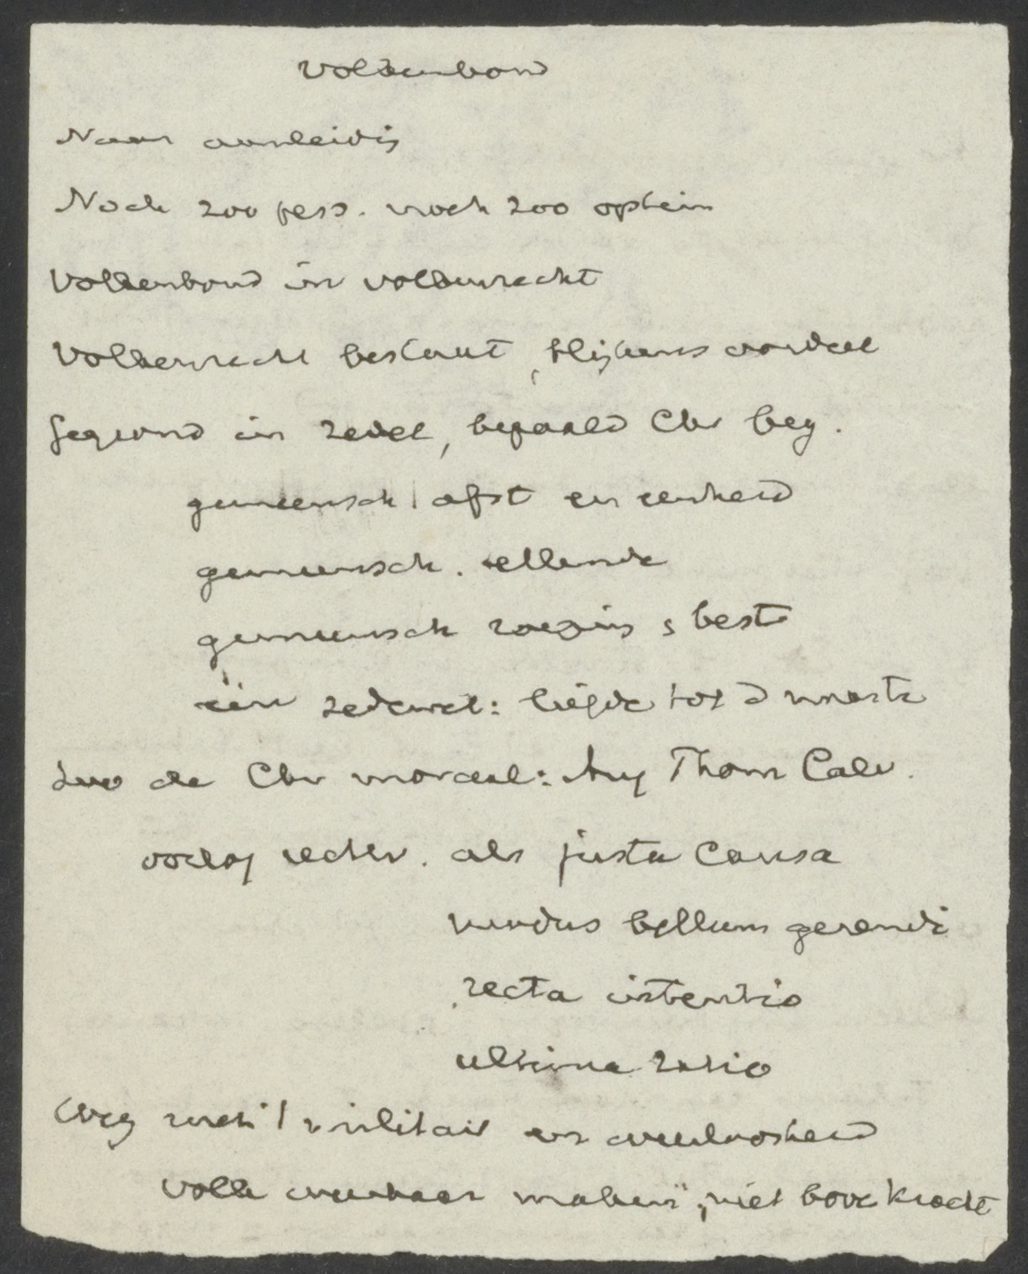 Volkenbond
Naar aanleidig
Noch 200 pess. noch 200 optim
Volkenbond in volkenrecht
Volkenrecht bestaat, blijkens oordeel
Gegrond in zedel, bepaald Chr beg.
gemeensch afst en eenheid
gemeensch. ellende
gemeensch roeping s beste
één zedewet: liefde tot d naaste
de Chr moraal: Aug Thom Calv.
oorlog rechtv. als justa causa
modus bellum gerendi
recta intentio
ultima ratio
Weg militair en weerloosheid
volk weerbaar maken", niet bove kracht